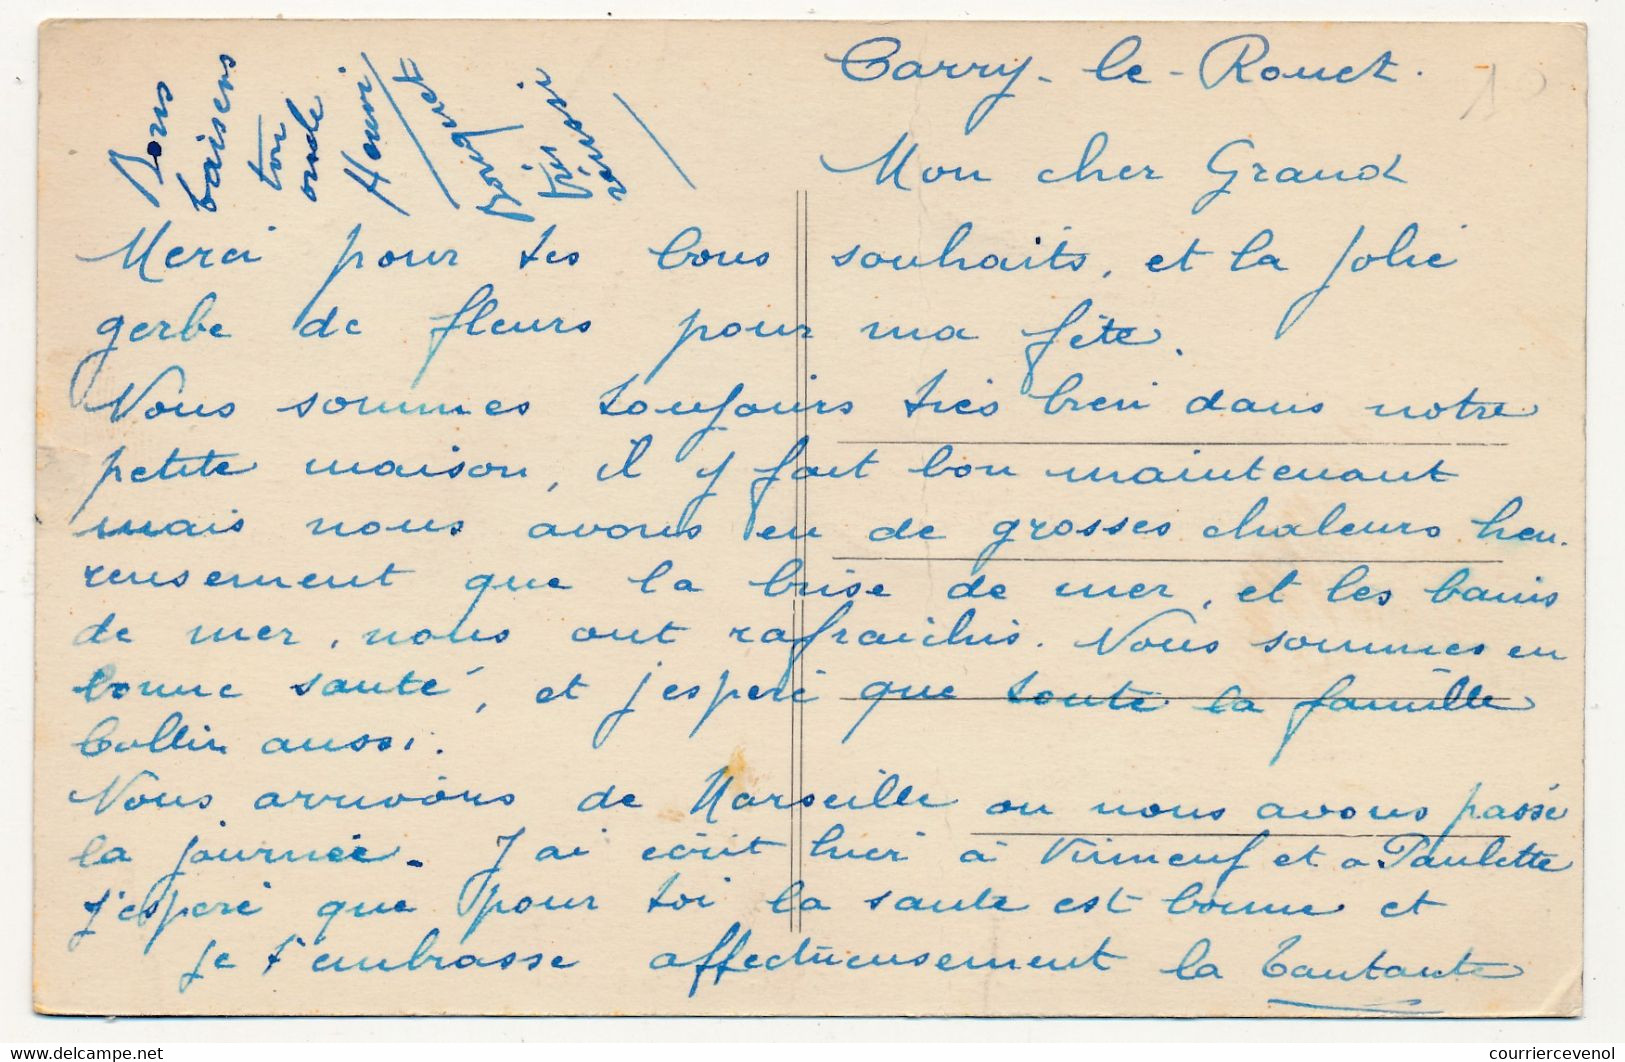 Carry-le-Rouet.
Mon cher Grand
Merci pour tes bons souhaits, et la jolie
gerbe de fleurs pour ma fête.
Nous sommes toujours très bien dans notre
petite maison, il y fait bon maintenant
mais nous avons eu de grosses chaleurs heu-
reusement que la brise de mer, et les bains
de mer, nous ont rafraichis. Nous sommes en
bonne santé, et j'espère que toute la famille
Collin aussi.
Nous arrivons de Marseille ou nous avons passé
la journée. J'ai écrit hier à et a Paulette
J'espère que pour toi la sante est bonne et
je t'embrasse affectueusement la Tantante
Bons
baisers
ton
oncle
Henri
www.delcampe.net
courriercevenol